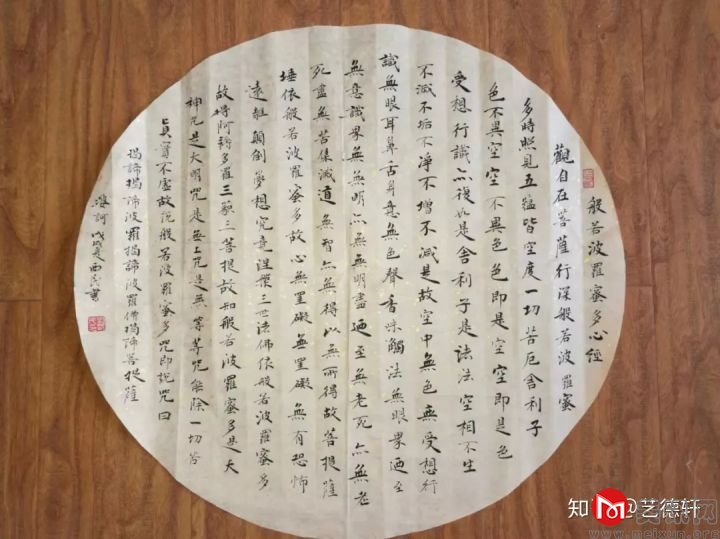 般若波羅蜜多心經
觀自在菩薩行深般若波羅蜜
多時照見五蘊皆空度一切苦厄舍利子
色不異空空不異色色即是空空即是色
受想行識亦復如是舍利子是諸法空相不生
不滅不垢不淨不增不減是故空中無色無受想行
識無眼耳鼻舌身意無色聲香味觸法無眼界迺至
無意識界無無明亦無無明盡迺至無老死亦無老
死盡無苦集滅道無智亦無得以無所得故菩提薩
埵依般若波羅蜜多故心無罣礙無罣礙無有恐怖
遠離顛倒夢想究竟涅槃三世諸佛依般若波羅蜜多
故得阿耨多羅三藐三菩提故知般若波羅蜜多是大
神咒是大明咒是無上咒是無等等咒能除一切苦
真實不虛故說般若波羅蜜多咒即說咒曰
揭諦揭諦波羅揭諦波羅僧揭諦菩提薩
婆訶 戊戌 西 書
知 @艺德轩
www.meixun.org